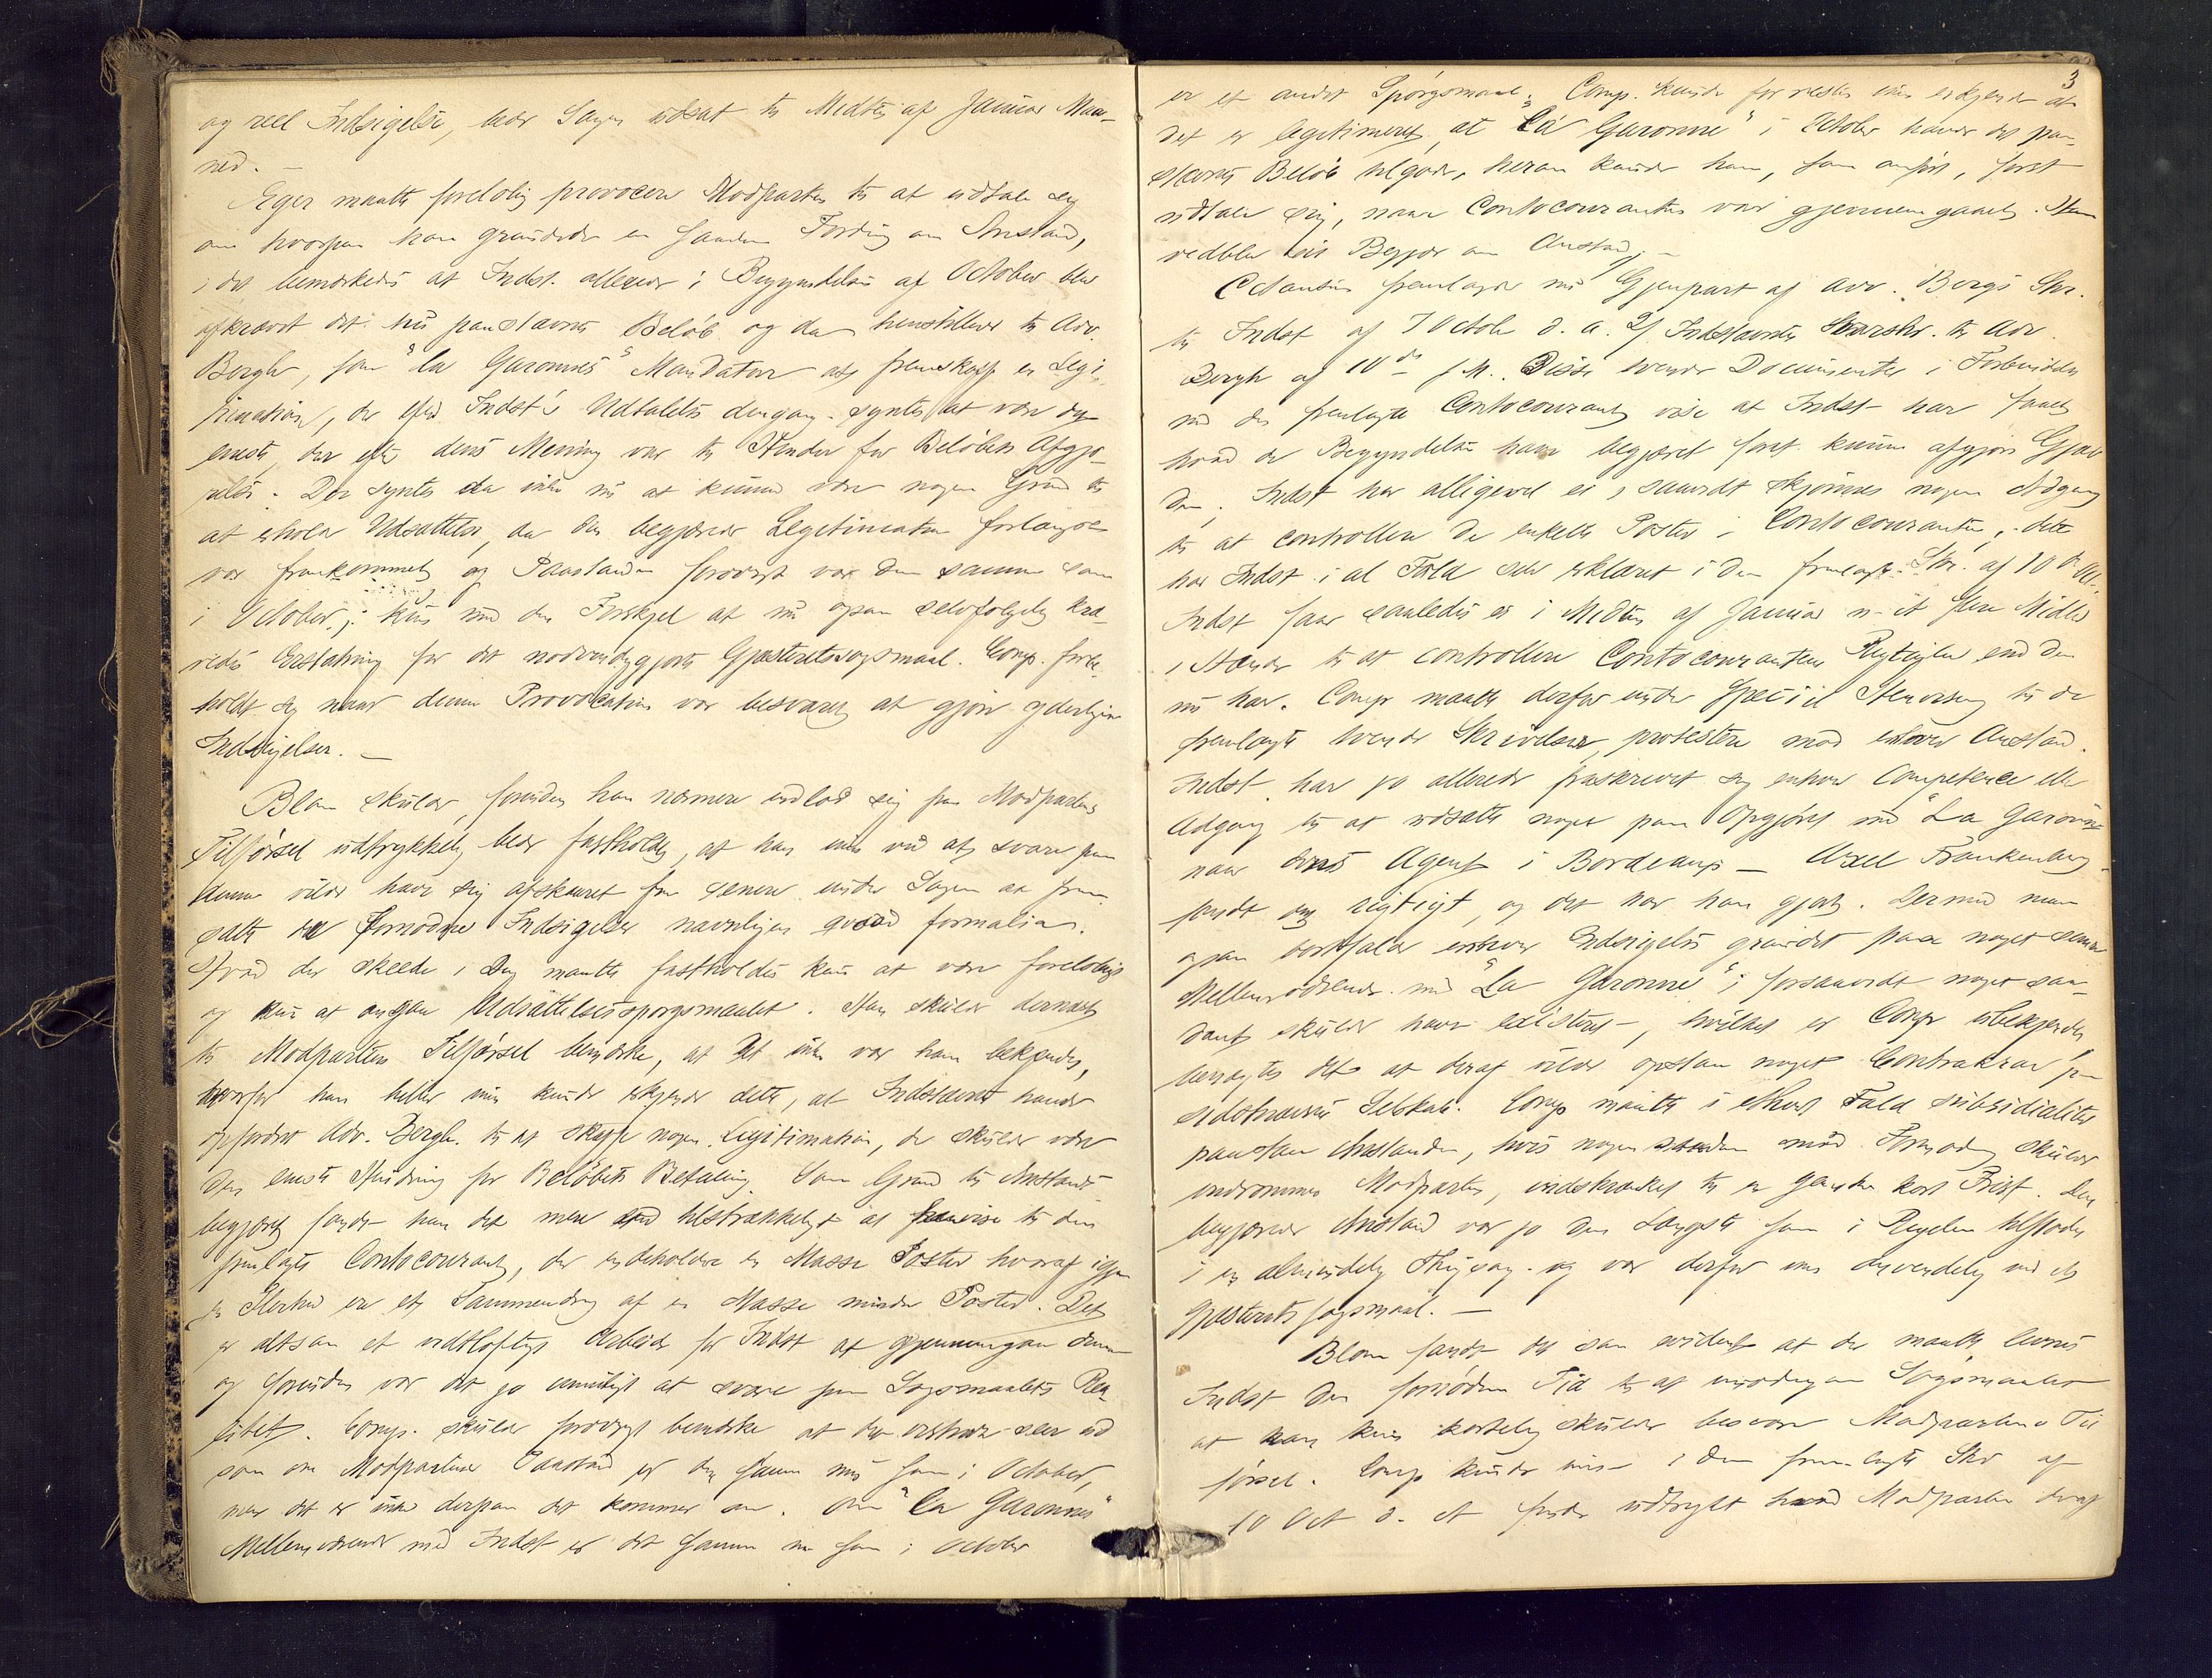 og reel Indsigelse, beder Sagen udsat til Midten af Januar Maa-
ned. —
Eger maatte foreløbig provocere Modparten til at udtale sig
om hvorpaa han grundede en saadan Fordring om Anstand,
i det bemærkedes at Indst. allerede i Begyndelsen af October blev
afkrævet det nu paastævnte Beløb og da henstillede til Adv.
Bergh, som "la Garonnes" Mandatar at fremskaffe en Legi-
timation, der efter Indst's Udtalelse dengang syntes at være det
eneste, der efter dens Mening var til Hinder for Beløbets Afgjø-
relse. Der syntes da ikke nu at kunne være nogen Grund til
at erholde Udsættelse, da den begjærede Legitimation forlængst
var fremkommet og Paastanden forøvrigt var den samme som
i October; kun med den Forskjel at nu ogsaa selvfølgelig kræ-
vedes Erstatning for det nødvendiggjorte Gjesteretssøgsmaal. Comp. forbe-
holdt sig naar denne Provocation var besvaret at gjøre yderligere
Indsigelser. —
Blom skulde, forinden han nærmere indlod sig paa Modpartens
Tilførsel udtrykkelig bede fastholdt, at han ikke ved at svare paa
denne vilde have sig afskaaret fra senere under Sagen at frem-
sætte de fornødne Indsigelser navnligen qvoad formalia.
Hvad der skeede i Dag maatte fastholdes kun at være foreløbigt
og kun at angaa Udsættelsesspørgsmaalet. Han skulde dernæst
til Modpartens Tilførsel bemærke, at det ikke var ham bekjendt,
hvorfor han heller ikke kunde erkjende dette, at Indstævnte havde
opfordret Adv. Bergh til at skaffe nogen Legitimation, der skulde være
den eneste Hindring for Beløbets Betaling. Som Grund til Anstands-
begjæret fandt han det mere end tilstrækkeligt at henvise til den
fremlagte Contocourant, der indeholder en Masse Poster hvoraf igjen
en Flerhed er et Sammendrag af en Masse mindre Poster. Det
er altsaa et vidtløftigt Arbeide for Indst at gjennemgaa denne
og forinden var det jo umuligt at svare paa Søgsmaalets Rea-
litet. Comp. skulde forøvrigt bemærke at det vistnok ser ud
som om Modpartens Paastand er den samme nu som i October,
men det er ikke derpaa det kommer an. Om "la Garonnes"
Mellemværende med Indst er det samme nu som i October
3
er et andet Spørgsmaal. Comp. kunde forresten ikke erkjende at
det er legitimeret, at "La Garonne" i October havde det paa-
stævnte Beløb tilgode, herom kunde han, som anført, først
udtale sig, naar Contocouranten var gjennemgaaet. Han
vedblev sit Begjær om Anstand. —
Citantens fremlagde nu Gjenpart af Adv. Berghs Skr.
til Indst af 7 Octobr d. A. 2) Indstævntes Svarskr. til Adv.
Bergh af 10de s. M. Disse tvende Documenter i Forbindelse
med den fremlagte Contocourant vise at Indst har faaet
hvad de Begyndelsen have begjæret for at kunne afgjøre Gjæl-
den. Indst har alligevel ei, saavidt skjønnes nogen Adgang
til at controllere de enkelte Poster i Contocouranten; dette
har Indst i al Fald selv erklæret i den fremlagte Skr. af 10de Oct.
Indst faar saaledes ei i Midten af Januar n. A. flere Midler
i Hænde til at controllere Contocourantens Rigtighed end den
nu har. Comp maatte derfor under speciel Henvisning til de
fremlagte tvende Skrivelser protestere mod enhver Anstand.
Indst. har jo allerede fraskrevet sig enhver Competence eller
Adgang til at udsætte noget paa Opgjøret med "La Garonne"
naar dens Agent i Bordeaux — Axel Frankenberg —
fandt det rigtigt, og det har han gjort. Dermed maa
ogsaa bortfalde enhver Indsigelse grundet paa noget senere
Mellemværende med "La Garonne"; forsaavidt noget saa-
dant skulde have existeret —, hvilket er Comp ubekjendt
benægtes det at deraf vilde opstaa noget Contrakrav for
sidstnævnte Selskab. Comp maatte i ethvert Fald subsidialiter
paastaa Anstanden, hvis nogen saadan mod Formodning skulde
indrømmes Modparten, indskrænket til en ganske kort Frist. Den
begjærede Anstand var jo den længste som i Regelen tilstodes
i en almindelig Thingsag og var derfor ikke anvendelig ved et
Gjesteretssøgsmaal. —
Blom fandt det saa evident at der maatte levnes
Indst den fornødne Tid til at imødegaa Søgsmaalet
at han kun kortelig skulde besvare Modpartens Til-
førsel. Comp kunde ikke i den fremlagte Skr af
10 Oct d. A. finde udtrykt hvad Modparten deraf